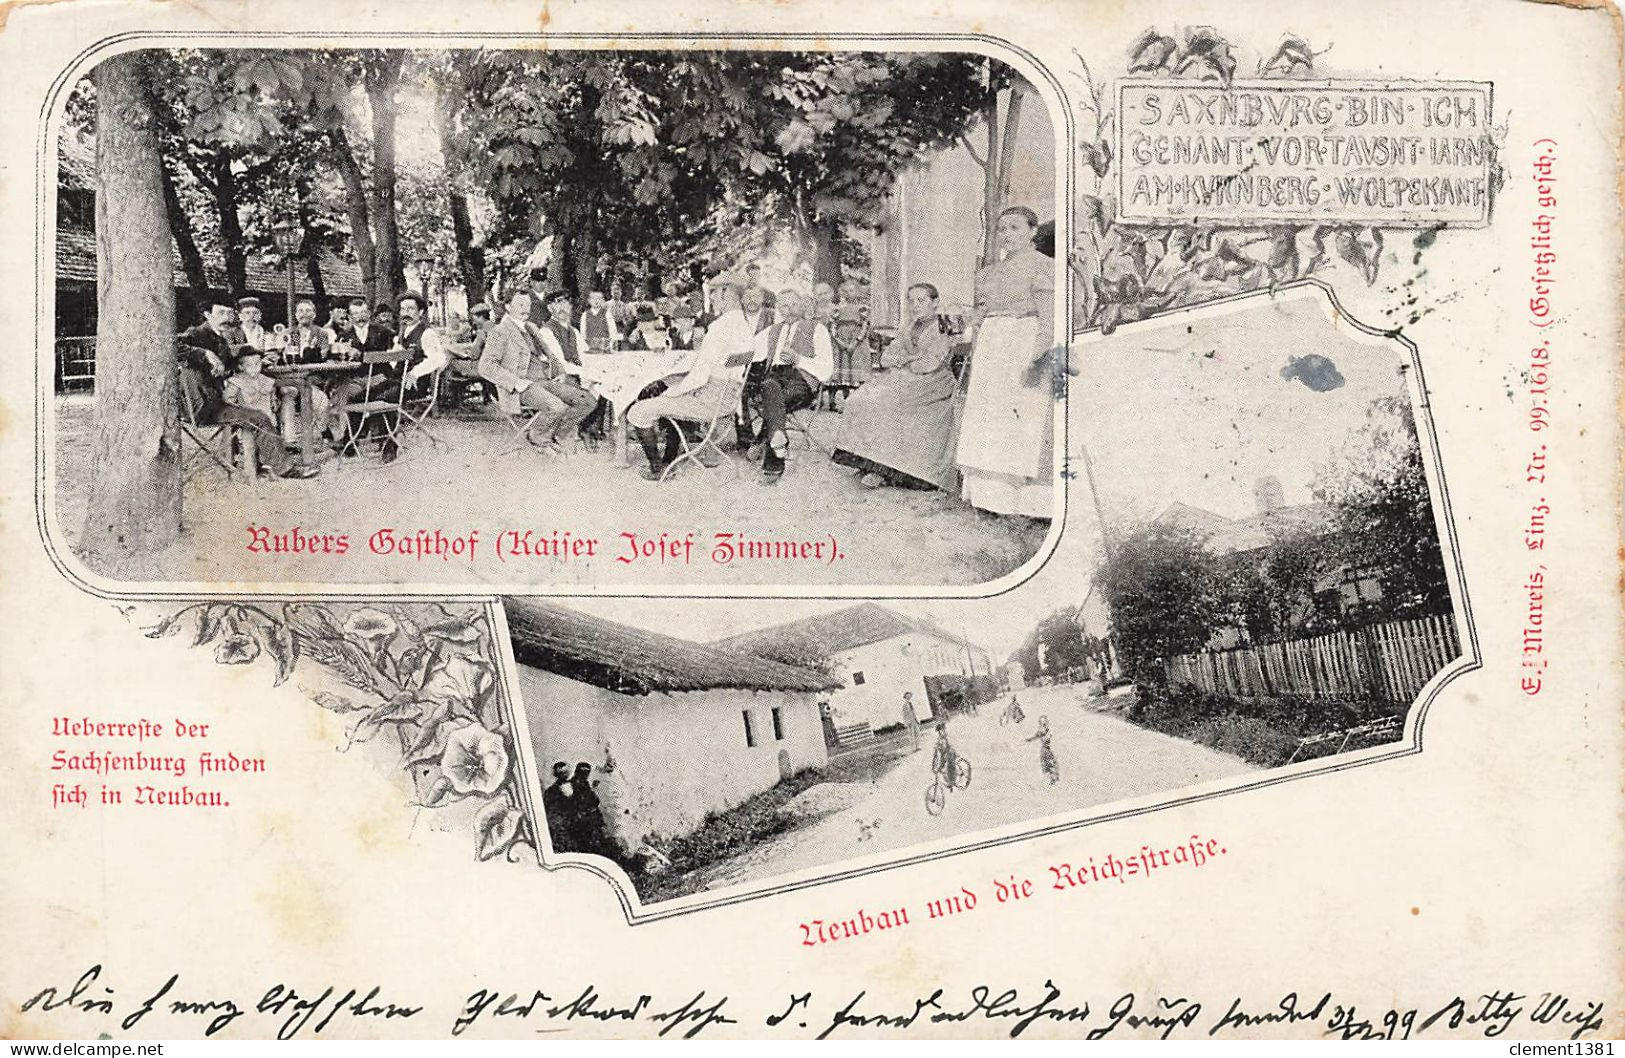 ·SAXNBVRG·BIN·ICH
GENANT·VOR·TAVSNT·IARN
AM·KVRNBERG·WOLPEKANT
Rubers Gasthof (Kaiser Josef Zimmer).
E. Mareis, Linz. Nr. 99:1618. (Gesetzlich gesch.)
Ueberreste der
Sachsenburg finden
sich in Neubau.
Neubau und die Reichsstraße.
Die herzlichsten Glückwünsche u. freundlichen Gruß sendet 99 Betty Weiß
clement1381